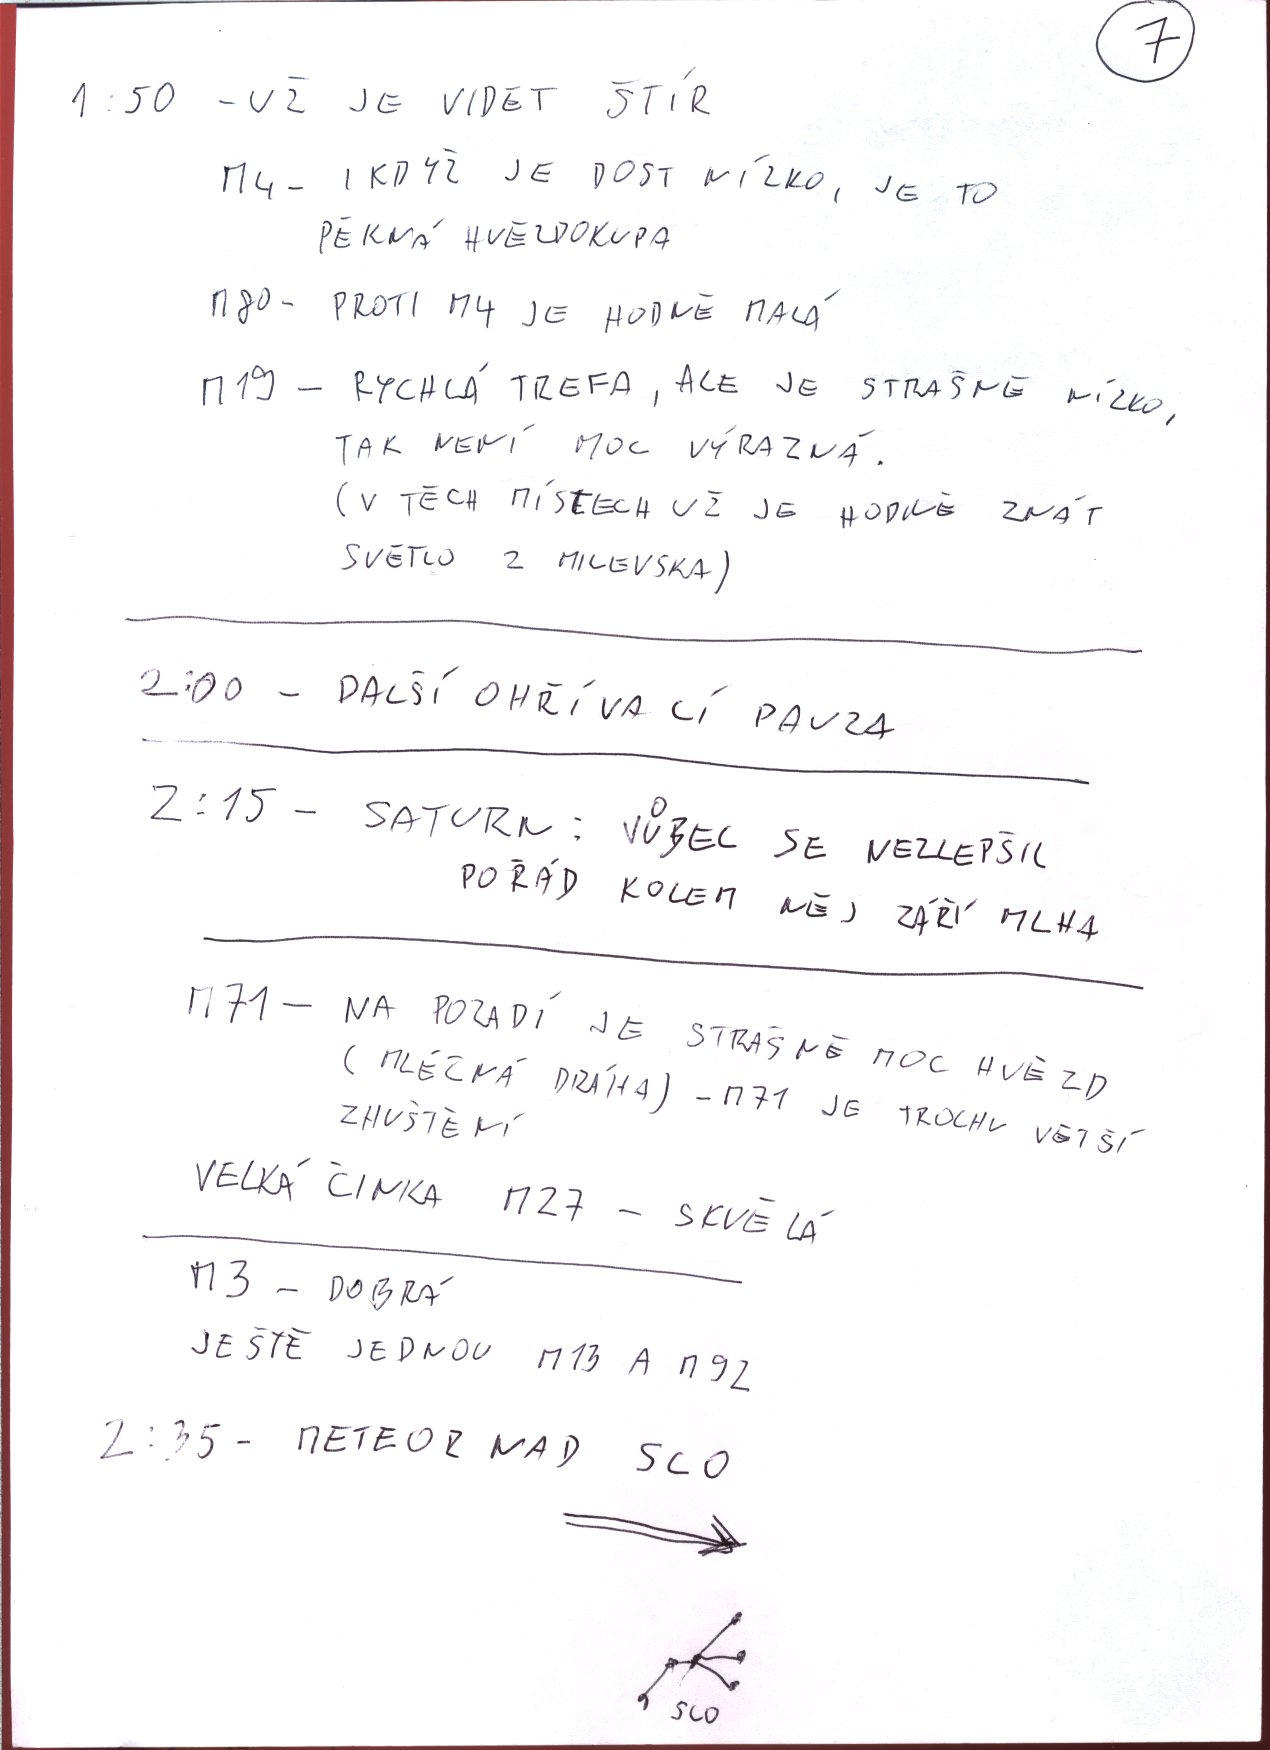 7
1:50 - UŽ JE VIDET ŠTÍR
M4 - I KDYŽ JE DOST NÍZKO, JE TO
PĚKNÁ HVĚZDOKUPA
M80 - PROTI M4 JE HODNĚ MALÁ
M19 - RYCHLÁ TREFA, ALE JE STRAŠNĚ NÍZKO,
TAK NENÍ MOC VÝRAZNÁ.
(V TĚCH MÍSTECH UŽ JE HODNĚ ZNÁT
SVĚTLO Z MILEVSKA)
2:00 - DALŠÍ OHŘÍVACÍ PAUZA
2:15 - SATURN: VŮBEC SE NEZLEPŠIL
POŘÁD KOLEM NĚJ ZÁŘÍ MLHA
M71 - NA POZADÍ JE STRAŠNĚ MOC HVĚZD
(MLÉČNÁ DRÁHA) - M71 JE TROCHU VĚTŠÍ
ZHUŠTĚNÍ
VELKÁ ČINKA M27 - SKVĚLÁ
M3 - DOBRÁ
JEŠTĚ JEDNOU M13 A M92
2:35 - METEOR NAD SCO
SCO